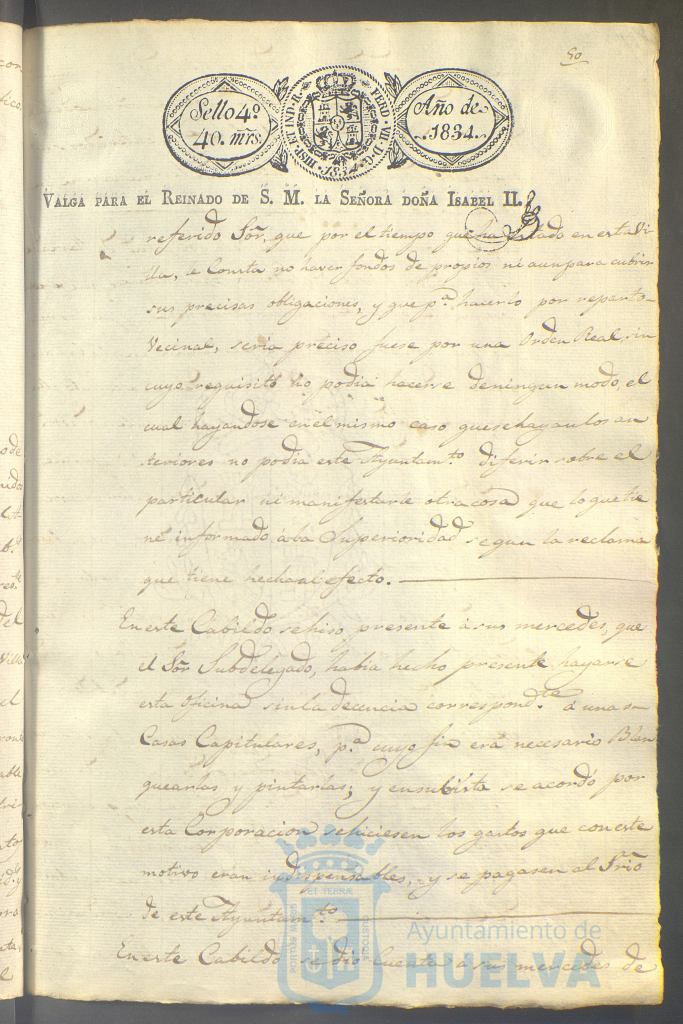 50
Sello 4º
40. mrs.
HISP. ET IND. R. FERD. VII. D. G. 1834
Año de
1834.
VALGA PARA EL REINADO DE S. M. LA SEÑORA DOÑA ISABEL II.
referido Sor, que por el tiempo que ha estado en esta Vi
lla, le Consta no haver fondos de propios ni aun para cubrir
sus precisas obligaciones, y que pª. hacerlo por reparto
Vecinal, seria preciso fuese por una Orden Real, sin
cuyo requisito no podia hacerse de ningun modo, el
cual hayandose en el mismo caso que se hayan los an
teriores no podia este Ayuntamto. diferir sobre el
particular ni manifestarle otra cosa que lo que tie
ne informado á la Superioridad segun la reclama
que tiene hecha al efecto.
En este Cabildo se hiso presente á sus mercedes, que
el Sor Subdelegado, habia hecho presente hayarse
esta Oficina sin la decencia correspondte. á unas
Casas Capitulares, pª. cuyo fin era necesario Blan
quearlas y pintarlas; y en su vista se acordó por
esta Corporacion se hiciesen los gastos que con este
motivo eran indispensables, y se pagasen al Srio
de este Ayuntamto.
En este Cabildo se dio Cuenta á sus mercedes de
Ayuntamiento de
HUELVA